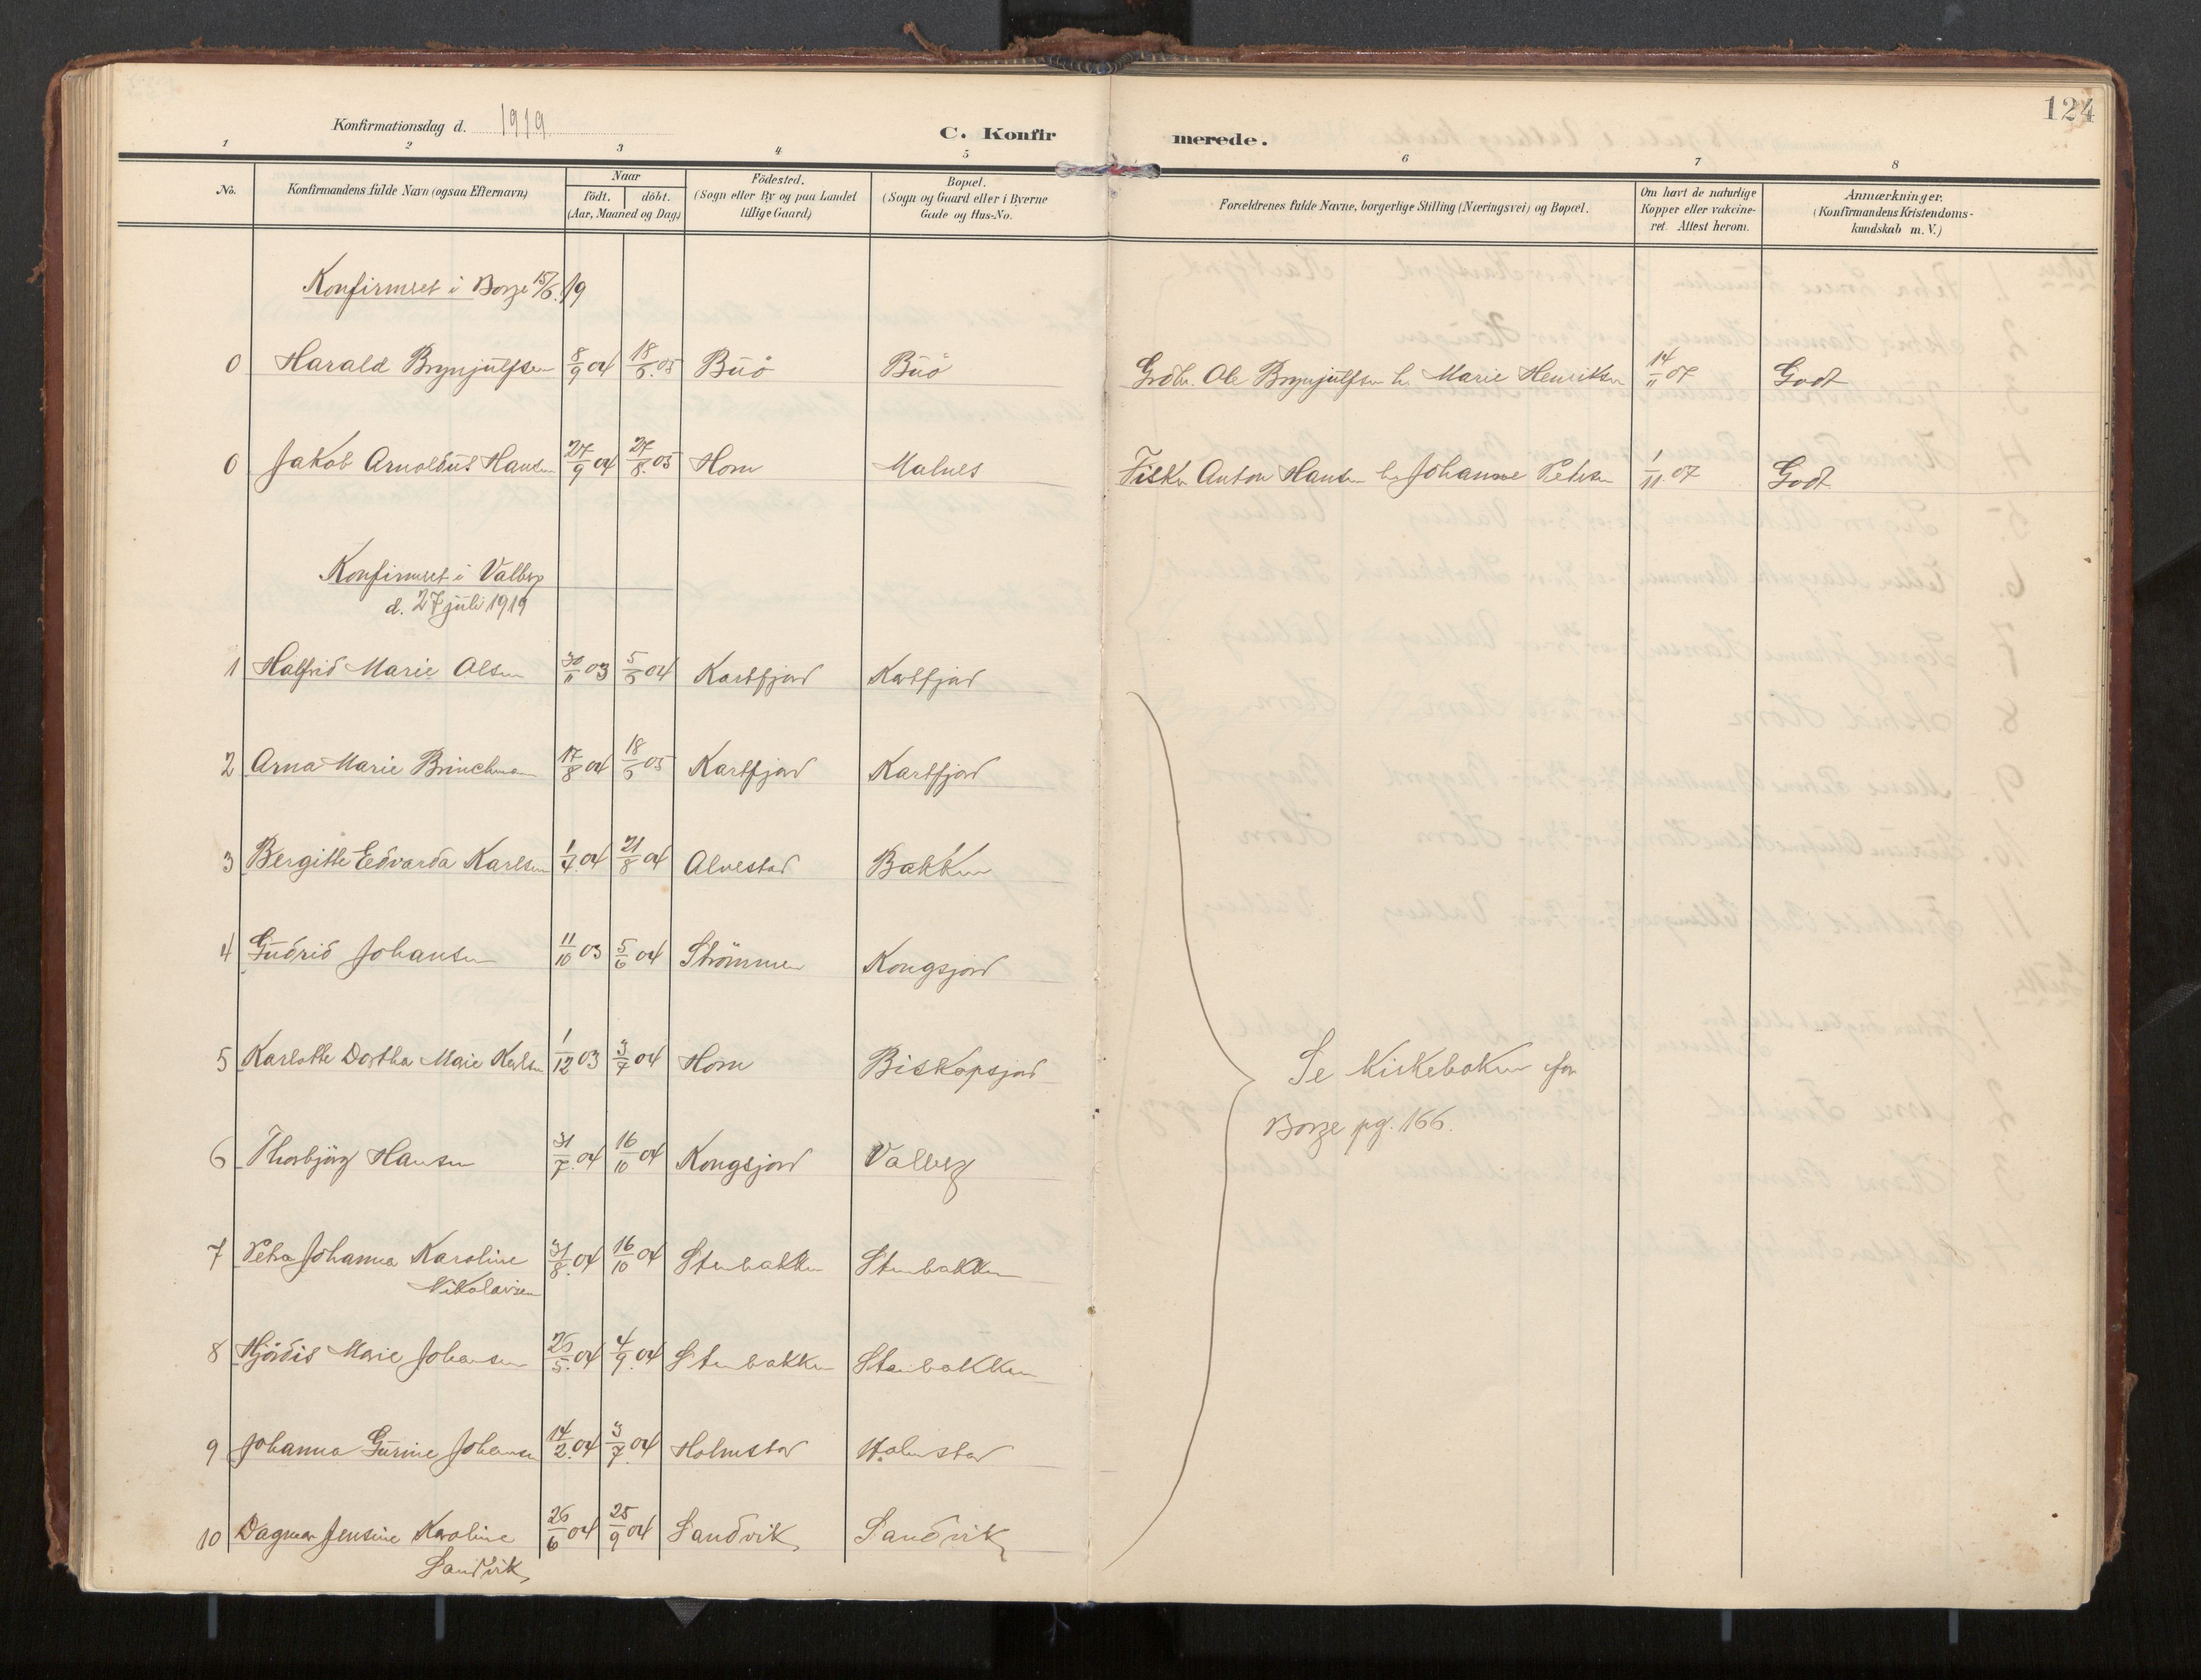 124
Konfirmationsdag d. 1919
C. Konfirmerede.
1 2 3 4 5 6 7 8
No. Konfirmandens fulde Navn (ogsaa Efternavn) Naar födt. döbt. (Aar, Maaned og Dag) Födested. (Sogn eller By og paa Landet tillige Gaard) Bopæl. (Sogn og Gaard eller i Byerne Gade og Hus-No. Forældrenes fulde Navne, borgerlige Stilling (Næringsvei) og Bopæl. Om havt de naturlige Kopper eller vakcineret. Attest herom. Anmærkninger. (Konfirmandens Kristendomskundskab m.V.)
Konfirmeret i Borge 15/6. 19
0 Harald Brynjulfsen 8/9 04 18/6. 05 Buö Buö Grdbr. Ole Brynjulfsen h. Marie Henriksen 14/11 07 Godt
0 Jakob Arnoldus Hansen 27/9 04 27/8. 05 Horn Malnes Fisker Anton Hansen h. Johanne Petersen 1/11. 07 Godt.
Konfirmeret i Valberg
d. 27 juli 1919
1 Halfrid Marie Olsen 30/11 03 5/6 04 Kartfjord Kartfjord
2 Arna Marie Brinchman 17/8 04 18/6 05 Kartfjord Kartfjord
3 Bergitte Edvarda Karlsen 1/4. 04 21/8 04 Alvestad Bakken
4 Gudrid Johansen 11/10 03 5/6 04 Strömmen Kongsjord
5 Karlotte Dortha Marie Karlsen 1/12 03 3/7 04 Horn Biskopsjord
Se kirkeboken for
Borge pg. 166.
6 Thorbjörg Hansen 31/7. 04 16/10 04 Kongsjord Valberg
7 Petra Johanna Karoline 31/8. 04 16/10 04 Stenbakken Stenbakken
Nikolaisen
8 Hjördis Marie Johansen 26/5. 04 4/9. 04 Stenbakken Stenbakken
9 Johanna Gurine Johansen 14/2. 04 3/7. 04 Holmstad Holmstad
10 Dagmar Jensine Karoline 26/6 04 25/9 04 Sandvik Sandvik
Sandvik